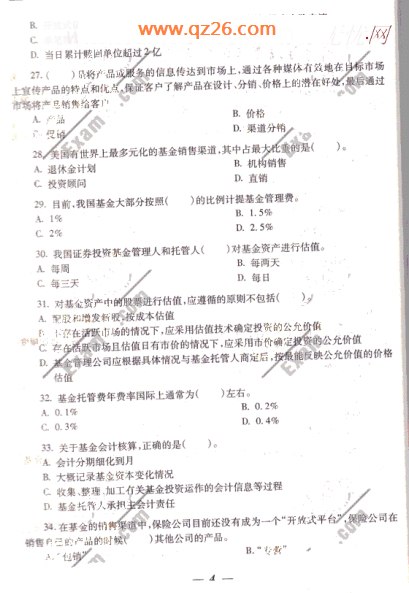 www.qz26.com
B.
C.
D. 当日累计赎回单位超过2亿
27. (　　)是将产品或服务的信息传达到市场上,通过各种媒体有效地在目标市场
上宣传产品的特点和优点,保证客户了解产品在设计、分销、价格上的潜在好处,最后通过
市场将产品销售给客户
A. 产品　　B. 价格
C. 促销　　D. 渠道分销
28. 美国有世界上最多元化的基金销售渠道,其中占最大比重的是(　　)。
A. 退休金计划　　B. 机构销售
C. 投资顾问　　D. 直销
29. 目前,我国基金大部分按照(　　)的比例计提基金管理费。
A. 1%　　B. 1.5%
C. 2%　　D. 2.5%
30. 我国证券投资基金管理人和托管人(　　)对基金资产进行估值。
A. 每周　　B. 每两天
C. 每三天　　D. 每日
31. 对基金资产中的股票进行估值,应遵循的原则不包括(　　)。
A. 配股和增发新股,按成本估值
B. 不存在活跃市场的情况下,应采用估值技术确定投资的公允价值
C. 存在活跃市场且估值日有市价的情况下,应采用市价确定投资的公允价值
D. 基金管理公司应根据具体情况与基金托管人商定后,按最能反映公允价值的价格
估值
32. 基金托管费年费率国际上通常为(　　)左右。
A. 0.1%　　B. 0.2%
C. 0.3%　　D. 0.4%
33. 关于基金会计核算,正确的是(　　)。
A. 会计分期细化到月
B. 大概记录基金资本变化情况
C. 收集、整理、加工有关基金投资运作的会计信息等过程
D. 基金托管人承担主会计责任
34. 在基金的销售渠道中,保险公司目前还没有成为一个"开放式平台",保险公司在
销售自己的产品的时候(　　)其他公司的产品。
A. "包销"　　B. "专卖"
— 4 —